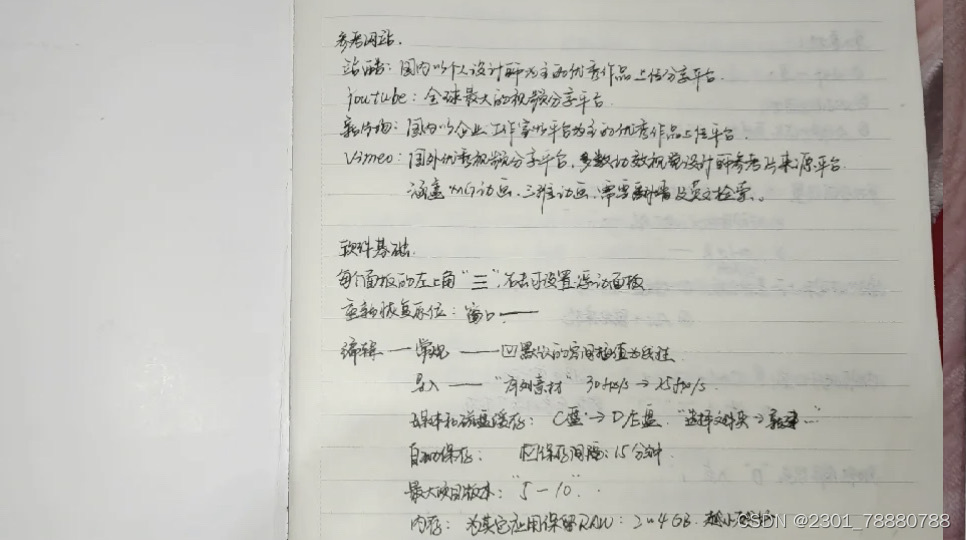 参考网站.
站酷: 国内以个人设计师为主的优秀作品上传分享平台.
Youtube: 全球最大的视频分享平台.
新片场: 国内以企业工作室以平台为主的优秀作品上传平台.
Vimeo: 国外优秀视频分享平台, 多数动效视觉设计师参考片来源平台.
涵盖MG动画, 三维动画, 需要翻墙及英文检索。
软件基础.
每个面板的左上角"三", 右击可设置浮动面板
重新恢复原位: 窗口——
编辑 — 常规 —— 凹默认的空间插值为线性
导入 —— "序列素材" 30fps/s → 25fps/s.
媒体和磁盘缓存: C盘 → D/E盘. "选择文件夹→新建..."
自动保存: 保存间隔: 15分钟.
最大项目版本: "5-10".
内存: 为其它应用保留RAW: 2~4GB. 越小
CSDN @2301_78880788